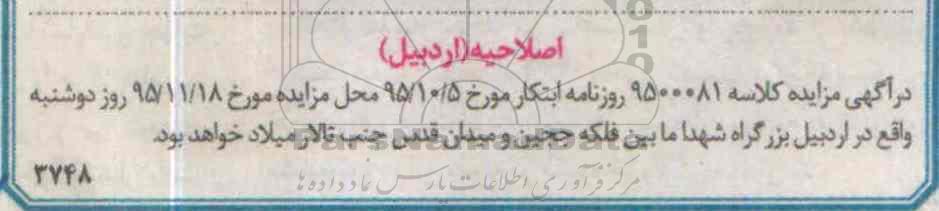 اصلاحیه(اردبیل)
درآگهی مزایده کلاسه ۹۵۰۰۰۸۱ روزنامه ابتکار مورخ ۹۵/۱۰/۵ محل مزایده مورخ ۹۵/۱۱/۱۸ روز دوشنبه
واقع در اردبیل بزرگراه شهدا ما بین فلکه ججین و میدان قدس جنب تالار میلاد خواهد بود.
مرکز فرآوری اطلاعات پارس نماد داده ها
۳۷۴۸